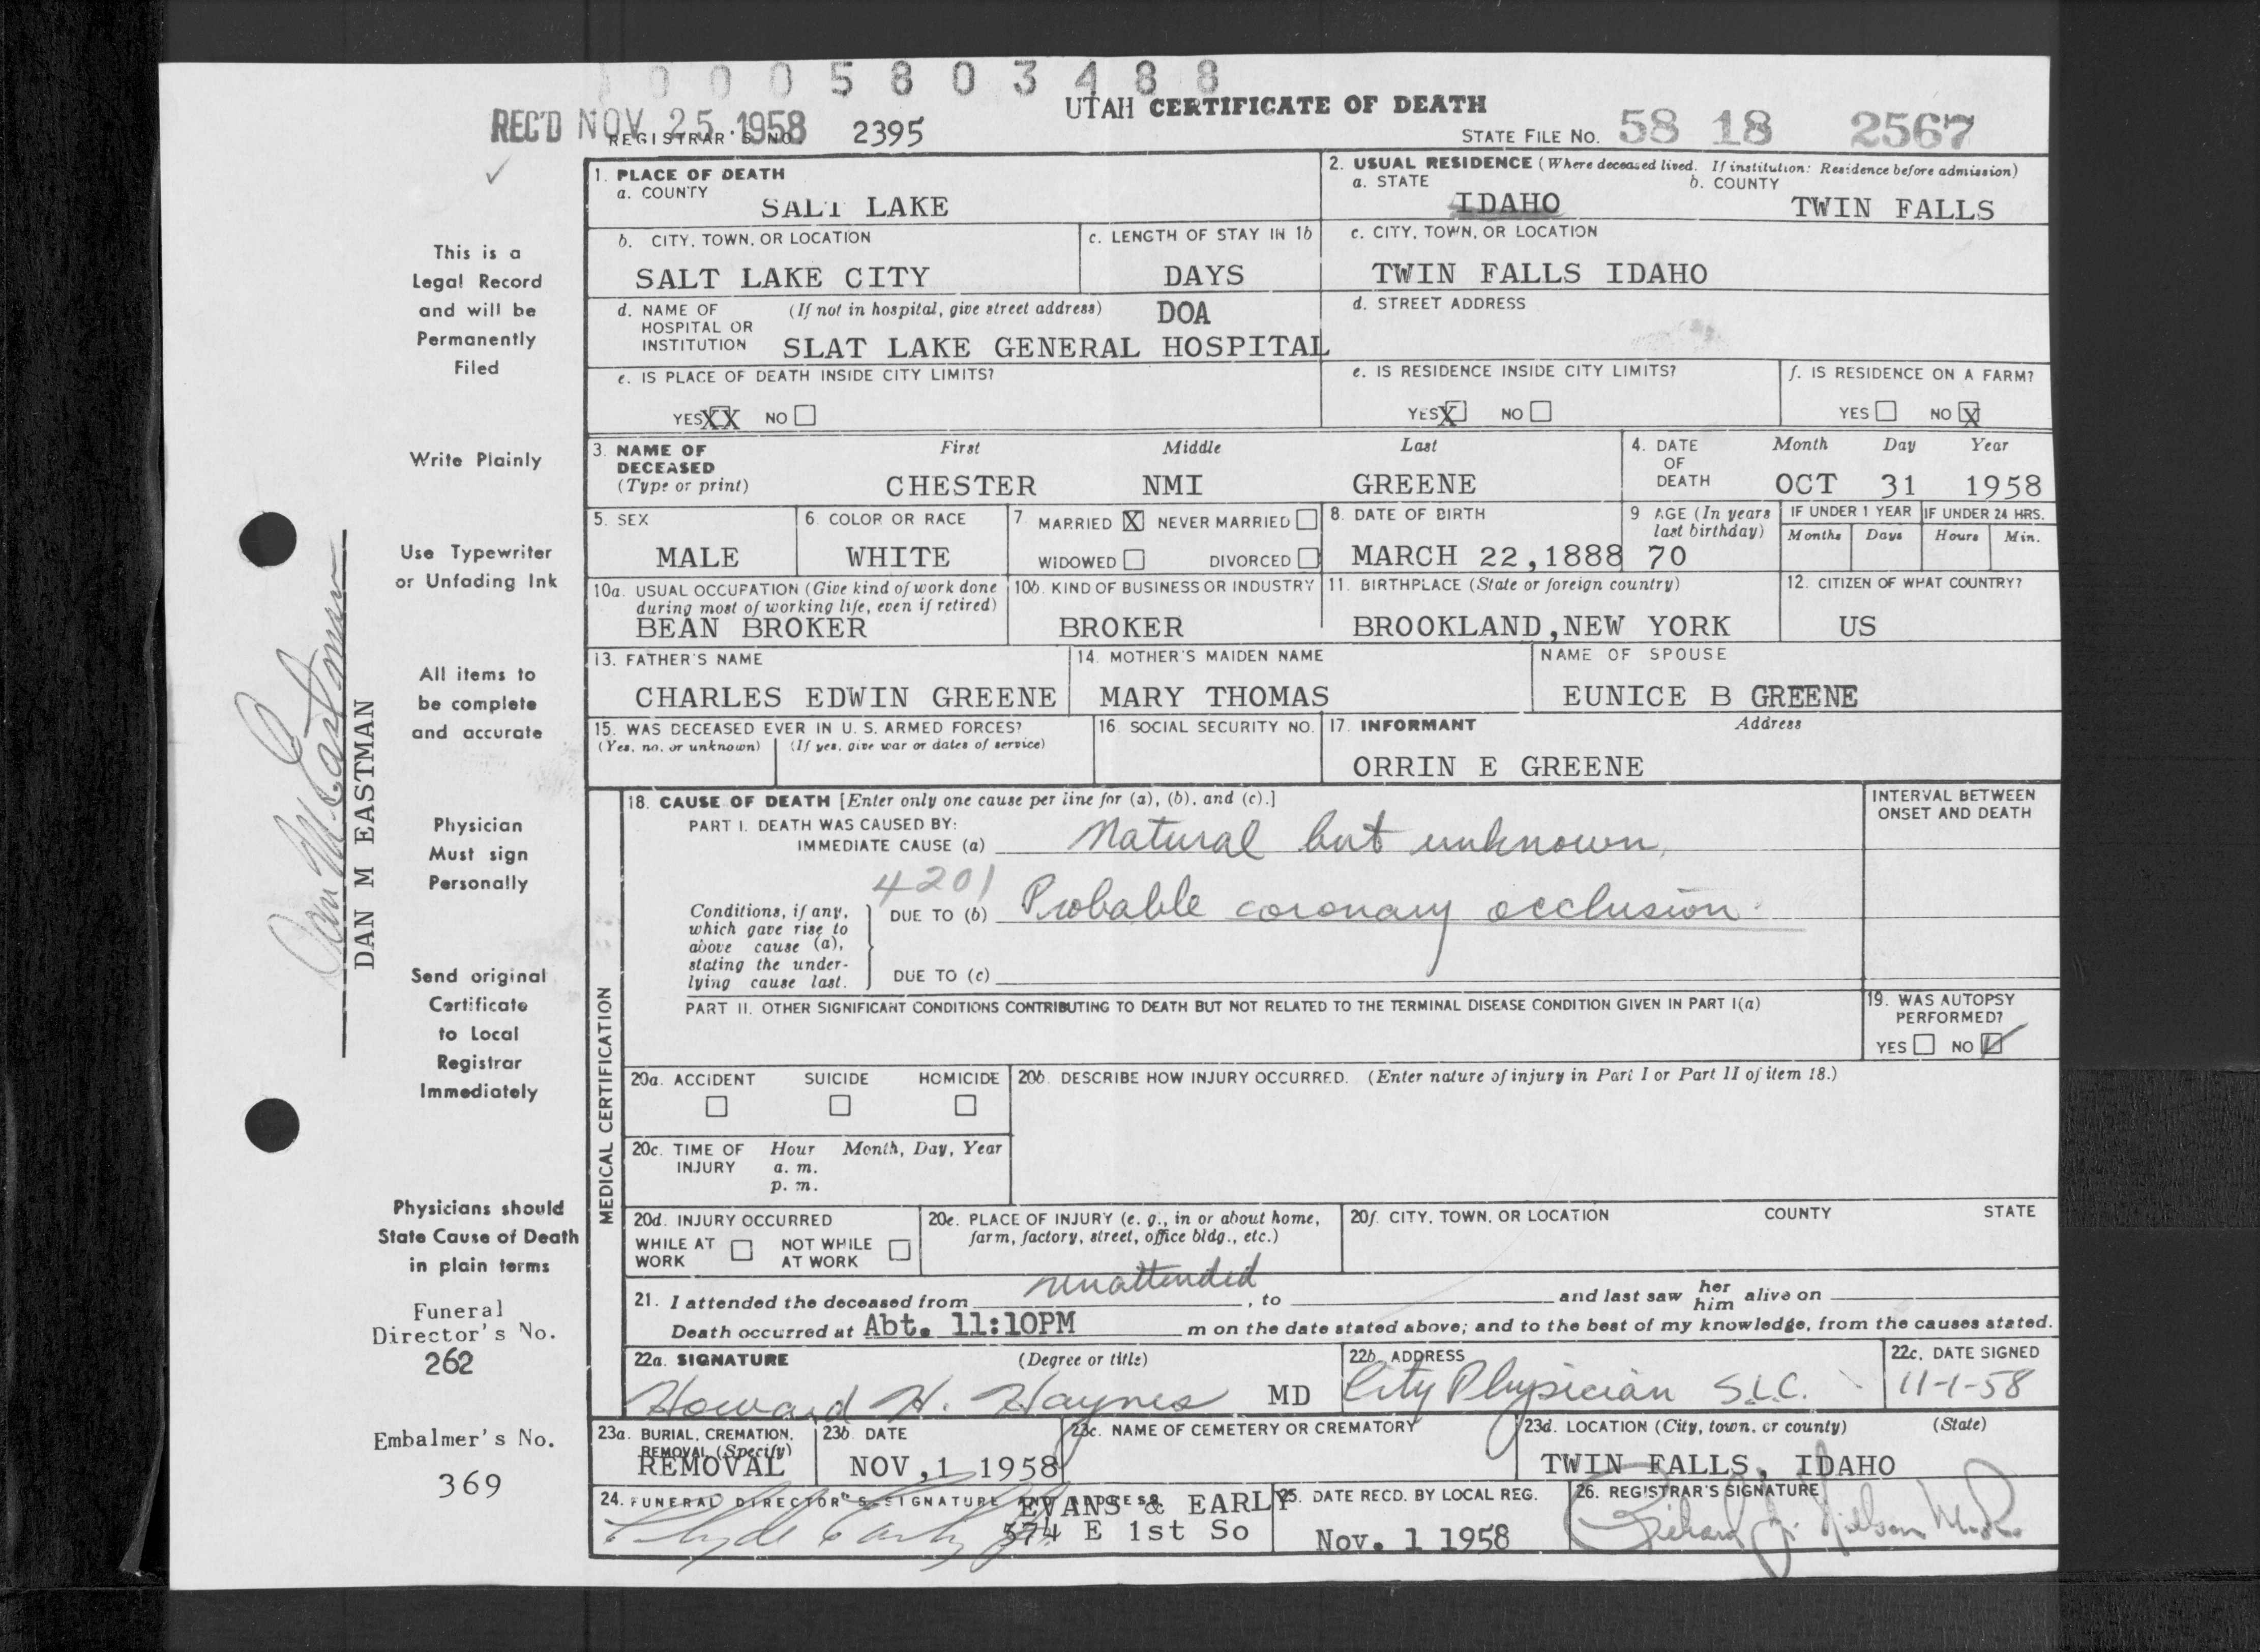 0 0 0 5 8 0 3 4 8 8
UTAH CERTIFICATE OF DEATH
REC'D NOV 25 1958
REGISTRAR'S NO. 2395
STATE FILE NO. 58 18 2567
1. PLACE OF DEATH
a. COUNTY
SALT LAKE
2. USUAL RESIDENCE (Where deceased lived. If institution: Residence before admission)
a. STATE b. COUNTY
IDAHO TWIN FALLS
b. CITY, TOWN, OR LOCATION
SALT LAKE CITY
c. LENGTH OF STAY IN 1b
DAYS
c. CITY, TOWN, OR LOCATION
TWIN FALLS IDAHO
d. NAME OF (If not in hospital, give street address) DOA
HOSPITAL OR
INSTITUTION SLAT LAKE GENERAL HOSPITAL
d. STREET ADDRESS
e. IS PLACE OF DEATH INSIDE CITY LIMITS?
YES XX NO
e. IS RESIDENCE INSIDE CITY LIMITS?
YES X NO
f. IS RESIDENCE ON A FARM?
YES NO X
3. NAME OF First Middle Last
DECEASED
(Type or print) CHESTER NMI GREENE
4. DATE Month Day Year
OF
DEATH OCT 31 1958
5. SEX
MALE
6. COLOR OR RACE
WHITE
7. MARRIED X NEVER MARRIED
WIDOWED DIVORCED
8. DATE OF BIRTH
MARCH 22,1888
9 AGE (In years
last birthday)
70
IF UNDER 1 YEAR
Months Days
IF UNDER 24 HRS.
Hours Min.
10a. USUAL OCCUPATION (Give kind of work done
during most of working life, even if retired)
BEAN BROKER
10b. KIND OF BUSINESS OR INDUSTRY
BROKER
11. BIRTHPLACE (State or foreign country)
BROOKLAND,NEW YORK
12. CITIZEN OF WHAT COUNTRY?
US
13. FATHER'S NAME
CHARLES EDWIN GREENE
14. MOTHER'S MAIDEN NAME
MARY THOMAS
NAME OF SPOUSE
EUNICE B GREENE
15. WAS DECEASED EVER IN U. S. ARMED FORCES?
(Yes, no, or unknown) (If yes, give war or dates of service)
16. SOCIAL SECURITY NO.
17. INFORMANT Address
ORRIN E GREENE
MEDICAL CERTIFICATION
18. CAUSE OF DEATH [Enter only one cause per line for (a), (b), and (c).]
PART I. DEATH WAS CAUSED BY:
IMMEDIATE CAUSE (a) Natural but unknown,
4201
Conditions, if any,
which gave rise to
above cause (a),
stating the under-
lying cause last.
DUE TO (b) Probable coronary occlusion
DUE TO (c)
INTERVAL BETWEEN
ONSET AND DEATH
PART II. OTHER SIGNIFICANT CONDITIONS CONTRIBUTING TO DEATH BUT NOT RELATED TO THE TERMINAL DISEASE CONDITION GIVEN IN PART I(a)
19. WAS AUTOPSY
PERFORMED?
YES NO
20a. ACCIDENT SUICIDE HOMICIDE
20b. DESCRIBE HOW INJURY OCCURRED. (Enter nature of injury in Part I or Part II of item 18.)
20c. TIME OF Hour Month, Day, Year
INJURY a. m.
p. m.
20d. INJURY OCCURRED
WHILE AT NOT WHILE
WORK AT WORK
20e. PLACE OF INJURY (e. g., in or about home,
farm, factory, street, office bldg., etc.)
20f. CITY, TOWN, OR LOCATION COUNTY STATE
21. I attended the deceased from unattended, to and last saw her him alive on
Death occurred at Abt. 11:10PM m on the date stated above; and to the best of my knowledge, from the causes stated.
22a. SIGNATURE (Degree or title)
Howard H. Haynes MD
22b. ADDRESS
City Physician S.L.C.
22c. DATE SIGNED
11-1-58
23a. BURIAL, CREMATION,
REMOVAL (Specify)
REMOVAL
23b. DATE
NOV,1 1958
23c. NAME OF CEMETERY OR CREMATORY
23d. LOCATION (City, town, or county) (State)
TWIN FALLS, IDAHO
24. FUNERAL DIRECTOR'S SIGNATURE AND ADDRESS
EVANS & EARLY
574 E 1st So
25. DATE RECD. BY LOCAL REG.
Nov. 1 1958
26. REGISTRAR'S SIGNATURE
This is a
Legal Record
and will be
Permanently
Filed
Write Plainly
Use Typewriter
or Unfading Ink
All items to
be complete
and accurate
Physician
Must sign
Personally
Send original
Certificate
to Local
Registrar
Immediately
Physicians should
State Cause of Death
in plain terms
Funeral
Director's No.
262
Embalmer's No.
369
Dan M Eastman
DAN M EASTMAN